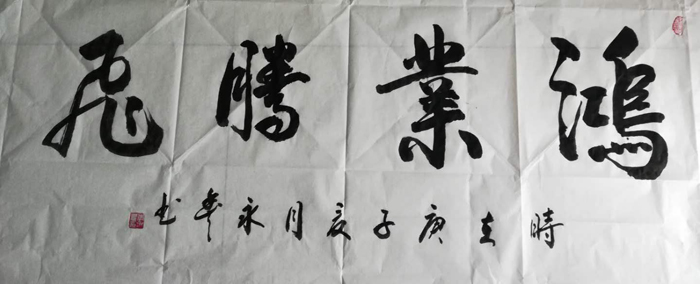 鴻業騰飛
時在庚子夏月永书